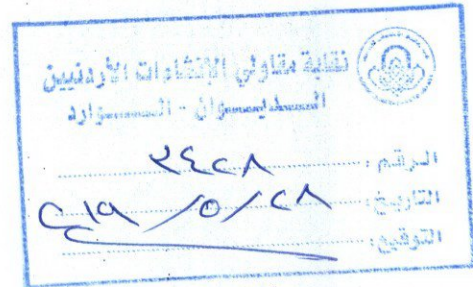 نقابة مقاولي الإنشاءات الأردنيين
الديوان - الوارد
الرقم: ٢٤٢٨
التاريخ: ٢٨/٥/٢١٩
التوقيع: